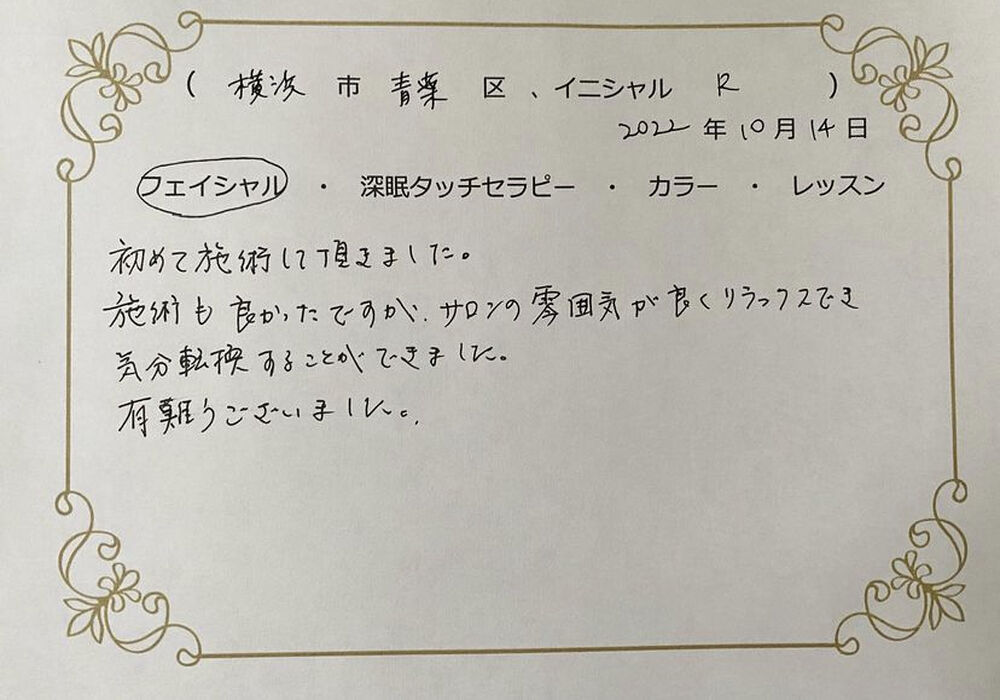 ( 横浜 市 青葉 区 、イニシャル R )
2022 年 10 月 14 日
フェイシャル ・ 深眠タッチセラピー ・ カラー ・ レッスン
初めて施術して頂きました。
施術も良かったですが、サロンの雰囲気が良くリラックスでき
気分転換することができました。
有難うございました。